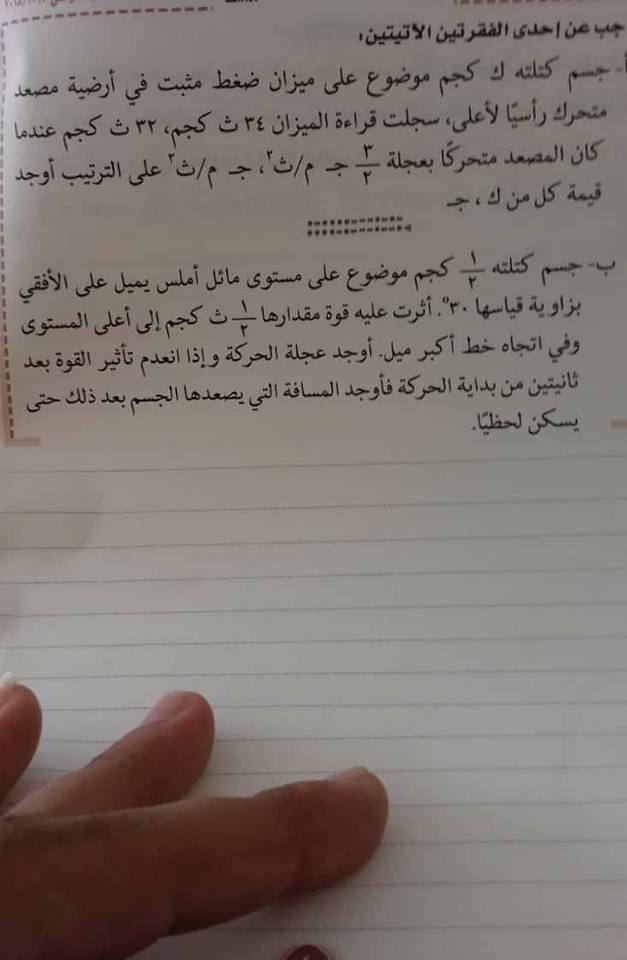 جب عن إحدى الفقرتين الآتيتين:
أ- جسم كتلته ك كجم موضوع على ميزان ضغط مثبت في أرضية مصعد
متحرك رأسيًا لأعلى، سجلت قراءة الميزان ٣٤ ث كجم، ٣٢ ث كجم عندما
كان المصعد متحركًا بعجلة ٣/٢ جـ م/ث٢، جـ م/ث٢ على الترتيب أوجد
قيمة كل من ك ، جـ
ب- جسم كتلته ١/٢ كجم موضوع على مستوى مائل أملس يميل على الأفقي
بزاوية قياسها ٣٠°. أثرت عليه قوة مقدارها ١/٢ ث كجم إلى أعلى المستوى
وفي اتجاه خط أكبر ميل. أوجد عجلة الحركة وإذا انعدم تأثير القوة بعد
ثانيتين من بداية الحركة فأوجد المسافة التي يصعدها الجسم بعد ذلك حتى
يسكن لحظيًا.